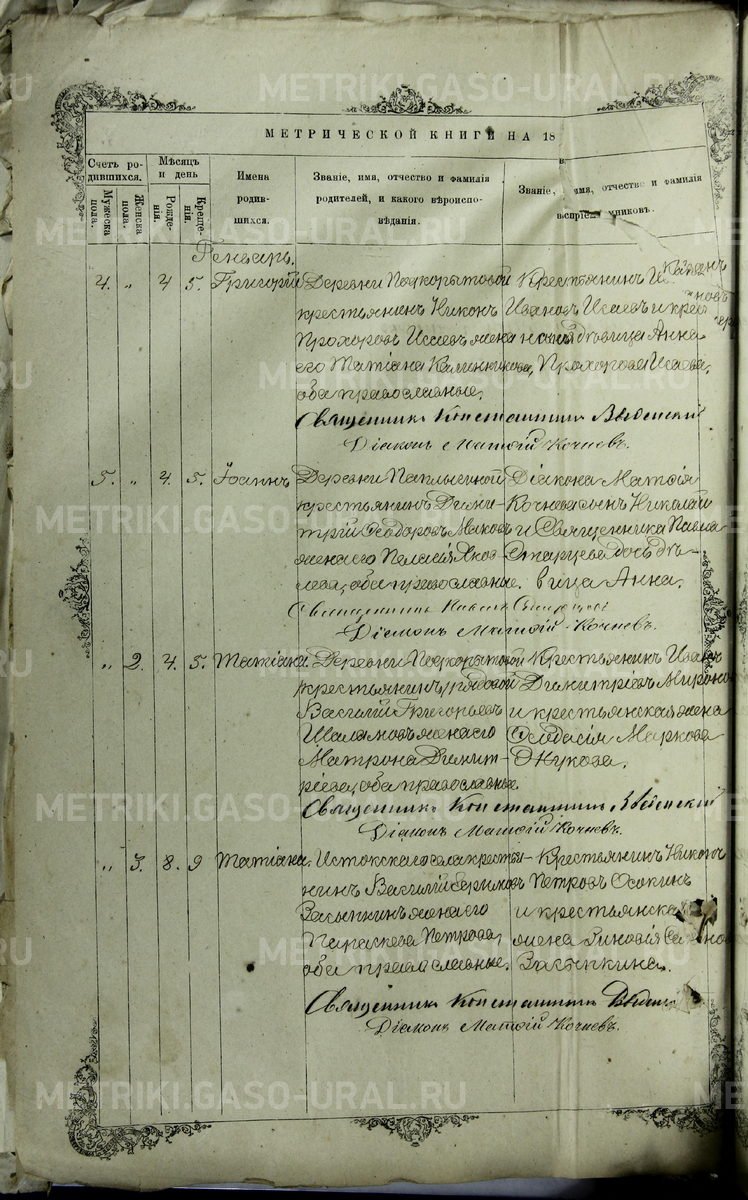 МЕТРИЧЕСКОЙ КНИГИ НА 18
Счетъ ро-
дившихся.
Мужеска
пола.
Женска
пола.
Мѣсяцъ
и день
Рожде-
нія.
Креще-
нія.
Имена
родив-
шихся.
Званіе, имя, отчество и фамилія
родителей, и какого вѣроиспо-
вѣданія.
Званіе, имя, отчество и фамилія
воспріемниковъ.
Генварь.
4. „ 4 5. Григорій
Деревни Подкорытовой
крестьянинъ Никонъ
Прохоровъ Исаевъ жена
его Татіана Калинникова,
оба православные.
Крестьянинъ
Ивановъ Исаевъ и крес
дѣвица Анна
Прохорова Исаева.
Священникъ Константинъ Введенскій
Діаконъ Матѳій Кочневъ.
5. „ 4. 5. Іоаннъ
Деревни
крестьянинъ Дими-
трій Ѳеодоровъ
жена его Пелагія Яков-
лева, оба православные.
Діакона Матѳія
Кочнева сынъ Николай
и Священника Павла
Старцева дочь дѣ-
вица Анна.
Священникъ Павелъ Старцевъ
Діаконъ Матѳій Кочневъ.
„ 2. 4. 5. Татіана.
Деревни Подкорытовой
крестьянинъ рядовой
Василій Григорьевъ
жена его
Матрона Димит-
ріева, оба православные.
Крестьянинъ Иванъ
Димитріевъ Мироно
и крестьянская жена
Ѳеодосія Маркова
Священникъ Константинъ Введенскій
Діаконъ Матѳій Кочневъ.
„ 3. 8. 9 Татіана.
Истокскаго села крестья-
нинъ Василій
Засыпкинъ жена его
Параскева Петрова,
оба православные.
Крестьянинъ Никонъ
Петровъ Осокинъ
и крестьянска
жена Зиновія
Засыпкина.
Священникъ Константинъ Введенс
Діаконъ Матѳій Кочневъ.
METRIKI.GASO-URAL.RU